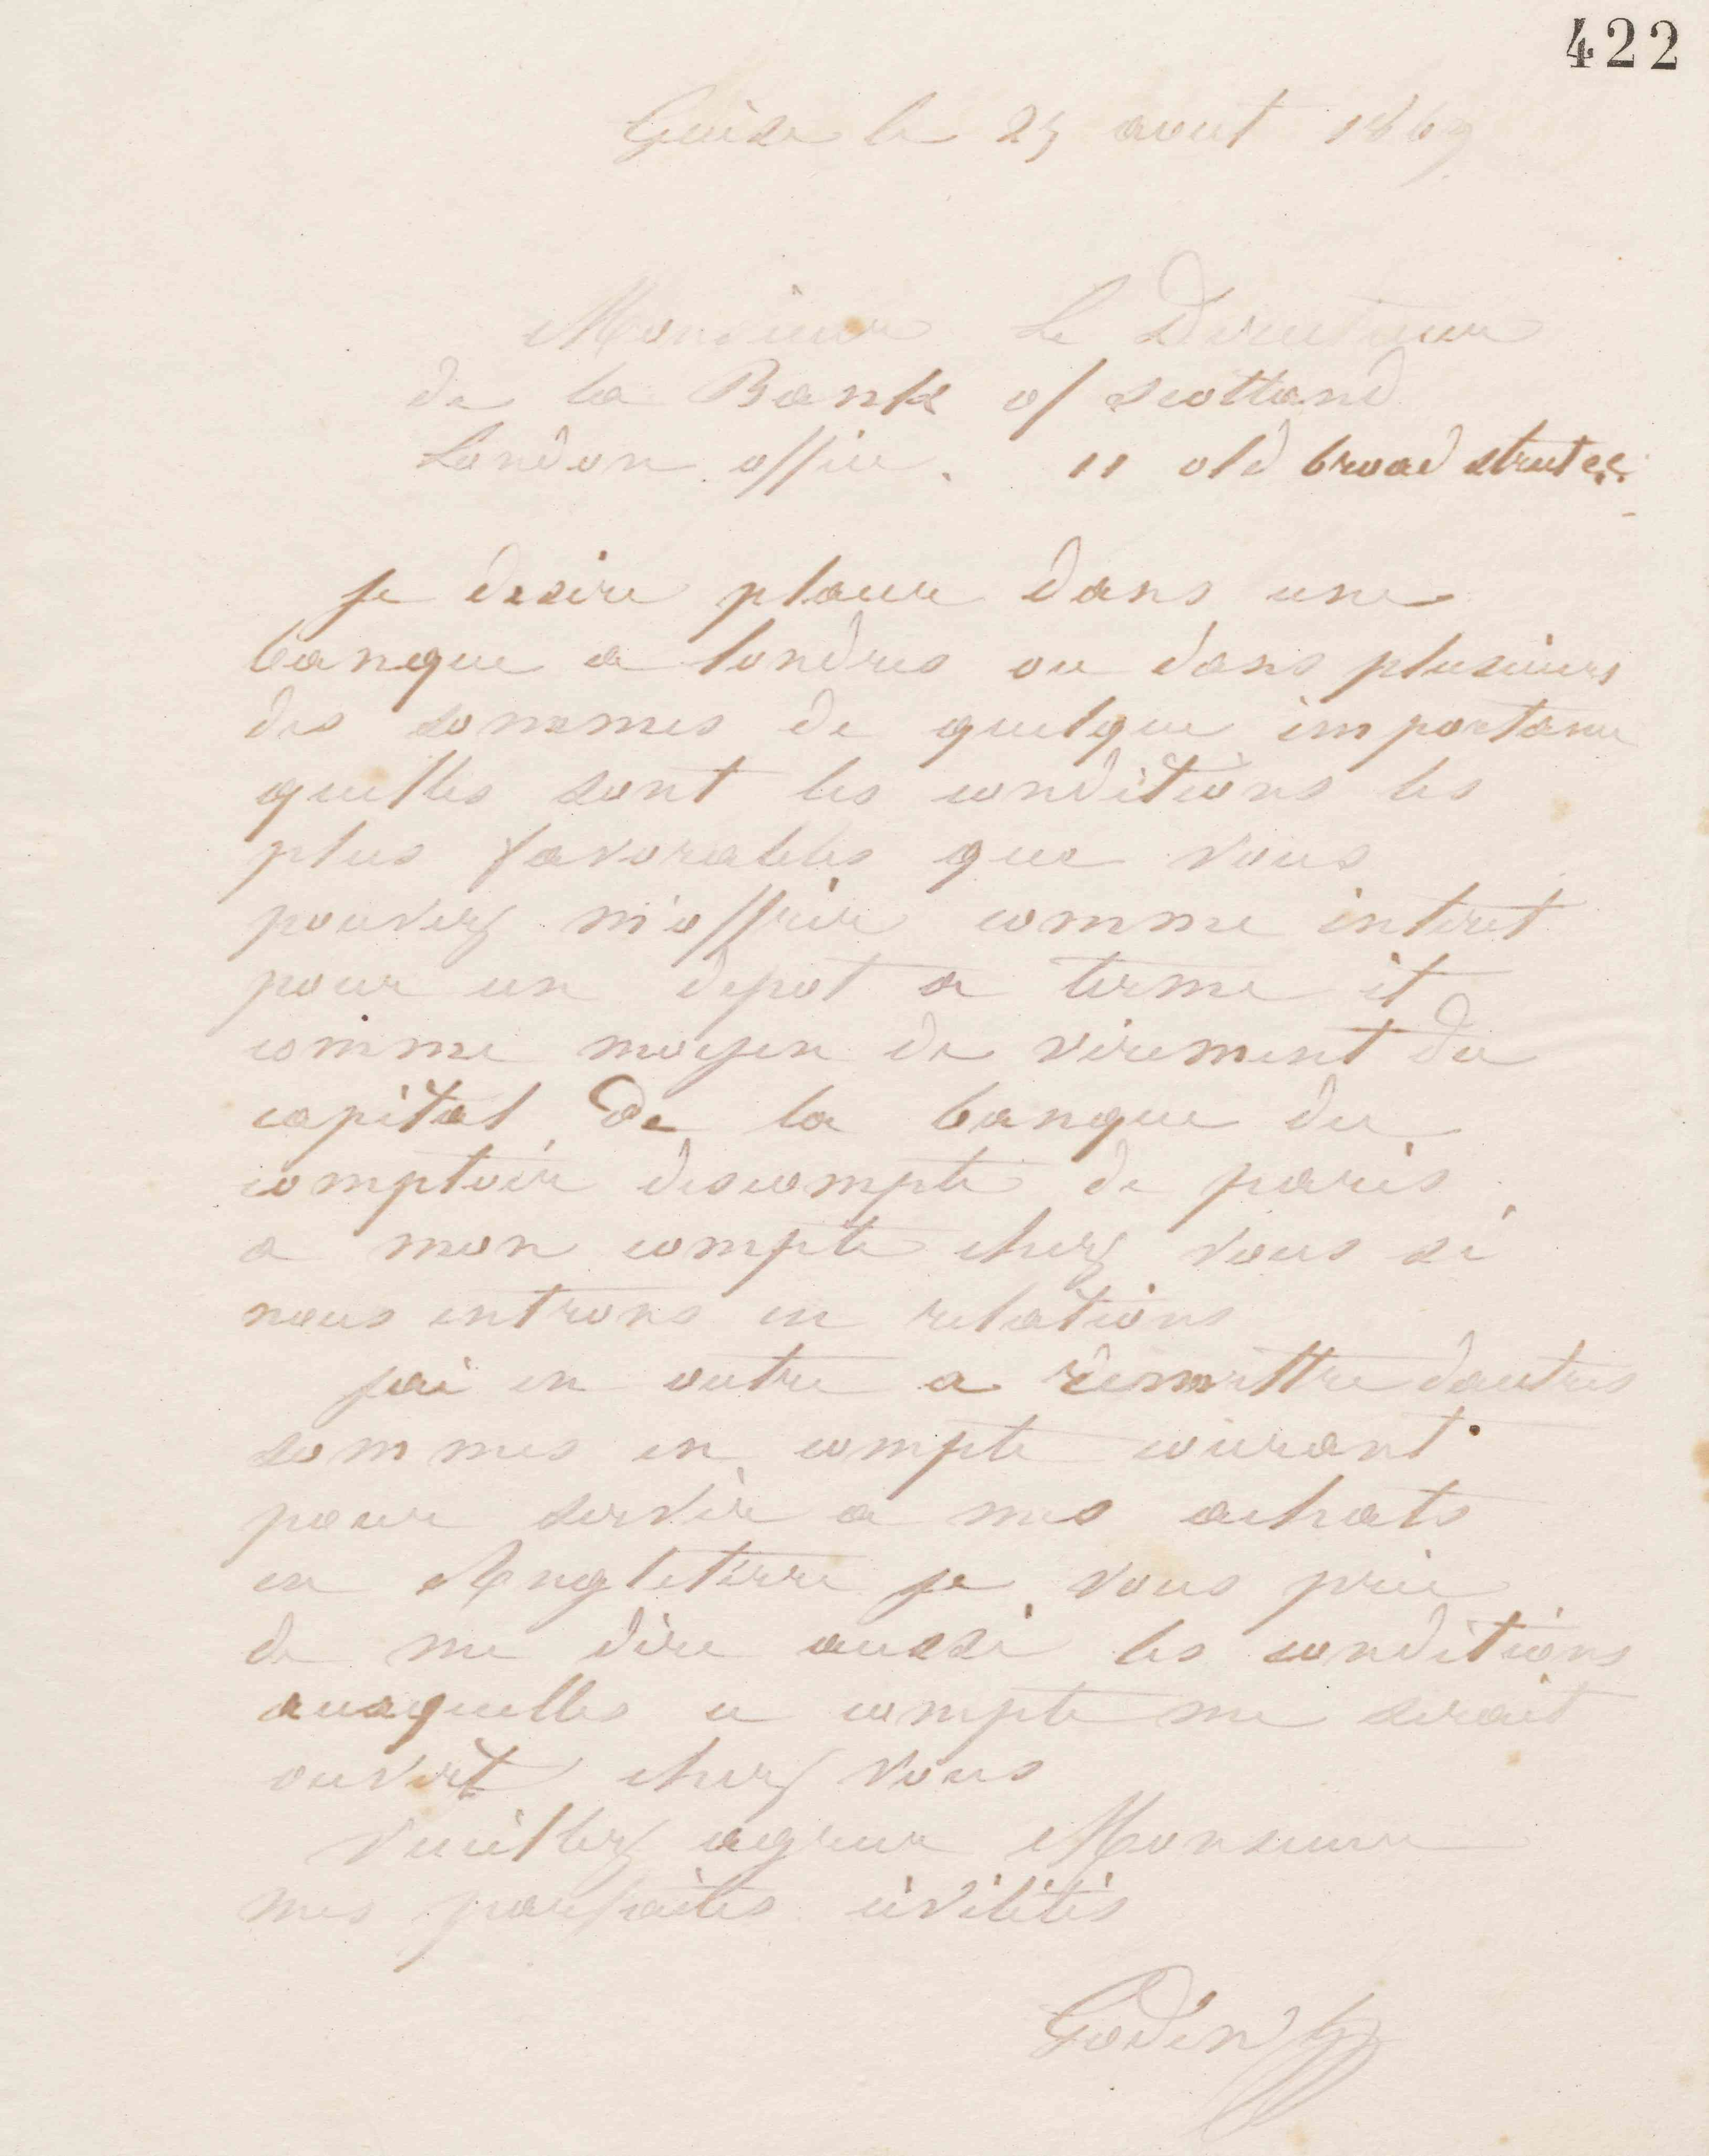 422
Guise le 25 aout 1869
Monsieur Le Directeur
de la Bank of scotland
London office. 11 old broad street
je desire placer dans une
banque a londres ou dans plusieurs
des sommes de quelque importance
quelles sont les conditions les
plus favorables que vous
pouvez m'offrir comme interet
pour un depot a terme et
comme moyen de virement du
capital de la banque du
comptoir descompte de paris
a mon compte chez vous si
nous entrons en relations
jai en outre a remettre dautres
sommes en compte courant
pour servir a mes achats
en Angleterre je vous prie
de me dire aussi les conditions
auxquelles ce compte me serait
ouvert chez vous
veuillez agreer Monsieur
mes parfaites civilités
Godin